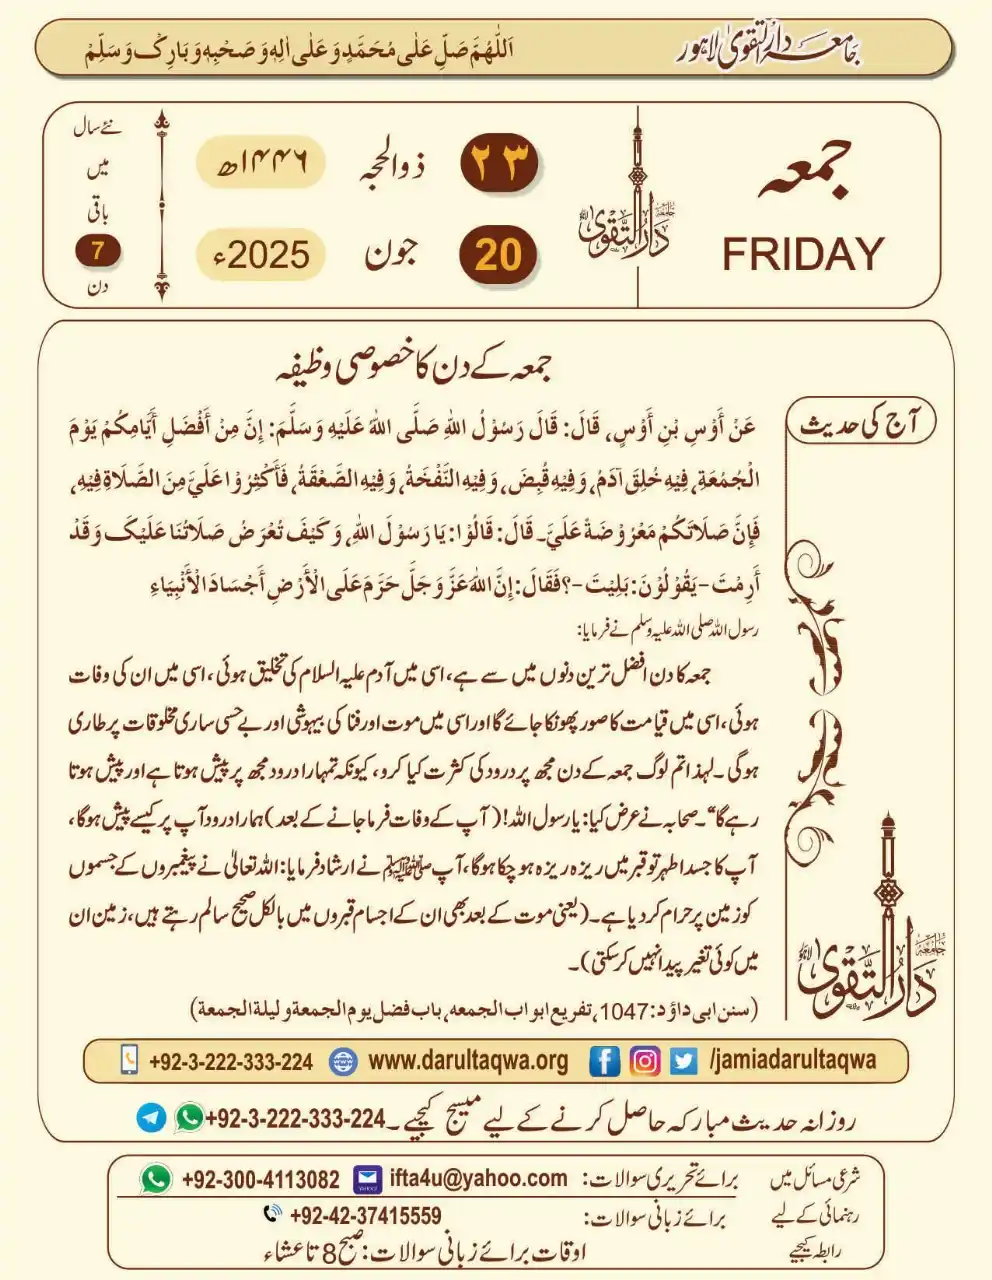 جامعہ دارالتقویٰ لاہور
اَللّٰهُمَّ صَلِّ عَلٰى مُحَمَّدٍ وَعَلٰى اٰلِهٖ وَصَحْبِهٖ وَبَارِكْ وَسَلِّمْ
جمعہ
FRIDAY
جامعہ دَارُالتَّقویٰ لاہور
۲۳ ذوالحجہ ۱۴۴۶ھ
20 جون 2025ء
نئے سال
میں
باقی
7
دن
جمعہ کے دن کا خصوصی وظیفہ
آج کی حدیث
عَنْ أَوْسِ بْنِ أَوْسٍ، قَالَ: قَالَ رَسُوْلُ اللهِ صَلَّى اللهُ عَلَيْهِ وَسَلَّمَ: إِنَّ مِنْ أَفْضَلِ أَيَّامِكُمْ يَوْمَ
الْجُمُعَةِ، فِيْهِ خُلِقَ آدَمُ، وَفِيْهِ قُبِضَ، وَفِيْهِ النَّفْخَةُ، وَفِيْهِ الصَّعْقَةُ، فَأَكْثِرُوْا عَلَيَّ مِنَ الصَّلَاةِ فِيْهِ،
فَإِنَّ صَلَاتَكُمْ مَعْرُوْضَةٌ عَلَيَّ۔ قَالَ: قَالُوْا: يَا رَسُوْلَ اللهِ، وَكَيْفَ تُعْرَضُ صَلَاتُنَا عَلَيْكَ وَقَدْ
أَرِمْتَ - يَقُوْلُوْنَ: بَلِيْتَ -؟ فَقَالَ: إِنَّ اللهَ عَزَّ وَجَلَّ حَرَّمَ عَلَى الْأَرْضِ أَجْسَادَ الْأَنْبِيَاءِ
رسول اللہ صلی اللہ علیہ وسلم نے فرمایا:
جمعہ کا دن افضل ترین دنوں میں سے ہے، اسی میں آدم علیہ السلام کی تخلیق ہوئی، اسی میں ان کی وفات
ہوئی، اسی میں قیامت کا صور پھونکا جائے گا اور اسی میں موت اور فنا کی بیہوشی اور بے حسی ساری مخلوقات پر طاری
ہوگی۔ لہذا تم لوگ جمعہ کے دن مجھ پر درود کی کثرت کیا کرو، کیونکہ تمہارا درود مجھ پر پیش ہوتا ہے اور پیش ہوتا
رہے گا“۔ صحابہ نے عرض کیا: یا رسول اللہ! (آپ کے وفات فرما جانے کے بعد) ہمارا درود آپ پر کیسے پیش ہوگا،
آپ کا جسد اطہر تو قبر میں ریزہ ریزہ ہو چکا ہوگا، آپ ﷺ نے ارشاد فرمایا: اللہ تعالیٰ نے پیغمبروں کے جسموں
کو زمین پر حرام کر دیا ہے۔ (یعنی موت کے بعد بھی ان کے اجسام قبروں میں بالکل صحیح سالم رہتے ہیں، زمین ان
میں کوئی تغیر پیدا نہیں کر سکتی)۔
(سنن ابی داؤد: 1047، تفریع ابواب الجمعہ، باب فضل یوم الجمعة و لیلة الجمعة)
جامعہ دَارُالتَّقویٰ لاہور
+92-3-222-333-224 www.darultaqwa.org /jamiadarultaqwa
روزانہ حدیث مبارکہ حاصل کرنے کے لیے میسج کیجیے۔ +92-3-222-333-224
شرعی مسائل میں
رہنمائی کے لیے
رابطہ کیجیے
برائے تحریری سوالات: ifta4u@yahoo.com +92-300-4113082
برائے زبانی سوالات: +92-42-37415559
اوقات برائے زبانی سوالات: صبح 8 تا عشاء